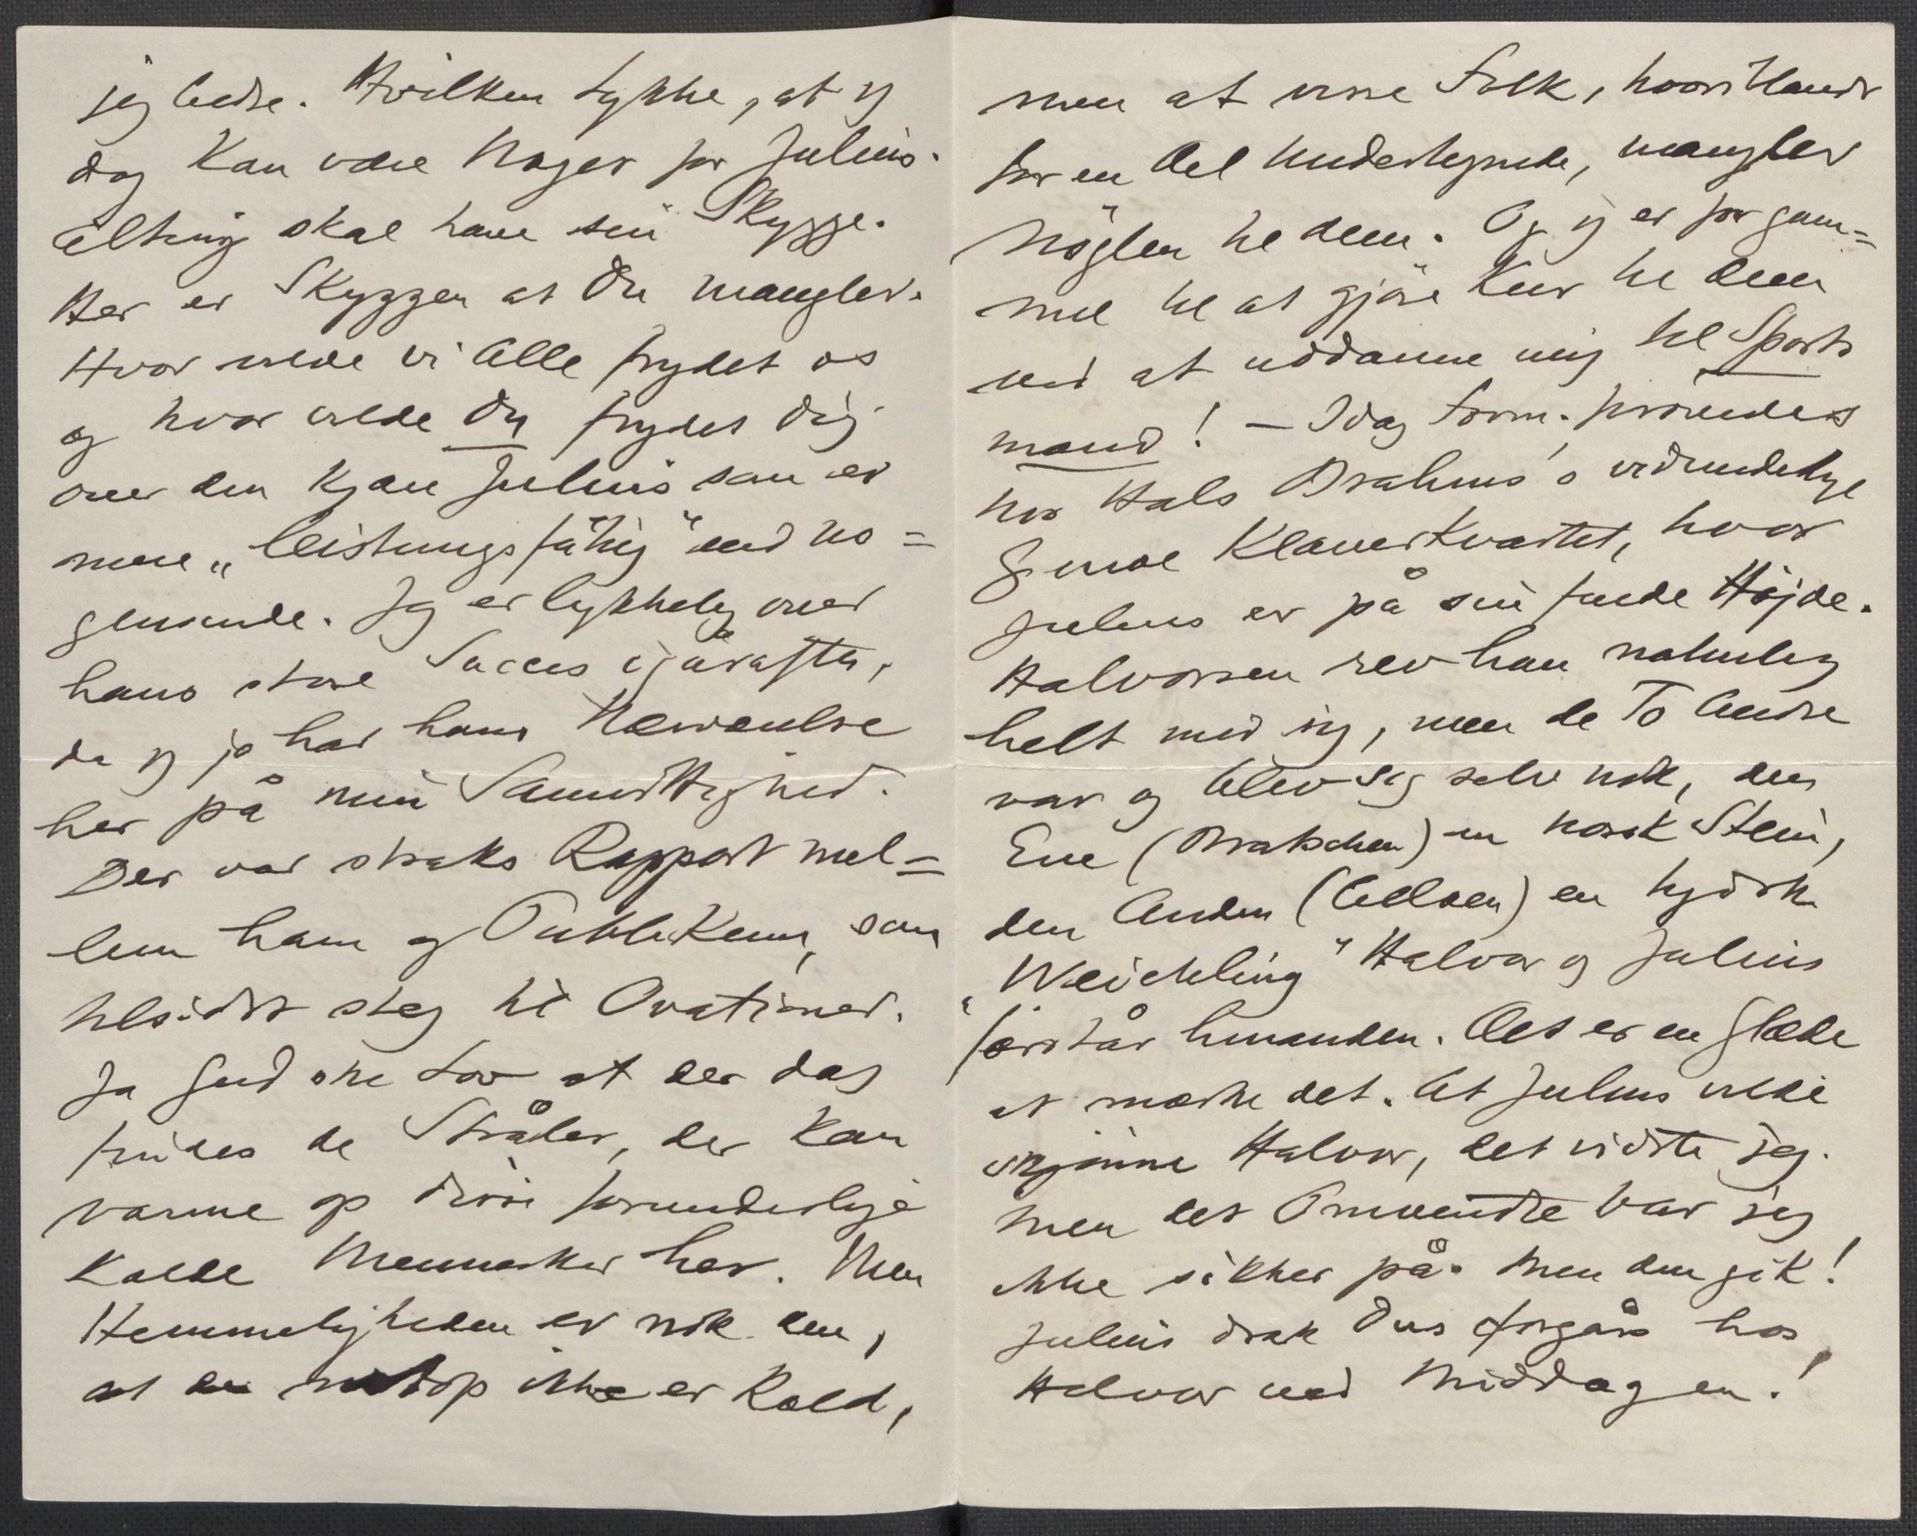 jeg bedre. Hvilken Lykke, at vi
dog kan være Noget for Julius.
Alting skal have sin Skygge.
Her er Skyggen at Du mangler.
Hvor vilde vi Alle frydet os
og hvor vilde Du frydet Dig
over den kjære Julius som er
mere „leistungsfähig" end no=
gensinde. Jeg er lykkelig over
hans store Succes igåraftes,
da jeg jo har hans Nærværelse
her på min Samvittighed.
Der var straks Rapport mel=
lem ham og Publikum, som
tilsidst steg til Ovationer.
Ja Gud ske Lov at der dog
findes de Stråler, der kan
varme op disse forunderlige
kolde Mennesker her. Men
Hemmeligheden er nok den,
at de netop ikke er kold,
men at visse Folk, hvoriblandt
for en Del Undertegnede, mangler
Nøglen til dem. Og jeg er for gam=
mel til at gjøre Kur til dem
ved at uddanne mig til Sports
mand! – Idag Form. prøvedes
hos Hals Brahms's vidunderlige
G mol Klaverkvartet, hvor
Julius er på sin fulde Højde.
Halvorsen rev han naturlig
helt med sig, men de To Andre
var og blev sig selv nok, den
Ene (Bratschen) en norsk Stein,
den Anden (Celloen) en tydsk
„Weichling" Halvor og Julius
forstår hinanden. Det er en Glæde
at mærke det. At Julius vilde
skjønne Halvor, det vidste jeg.
Men det Omvendte var jeg
ikke sikker på. Men den gik!
Julius drak Dus forgårs hos
Halvor ved Middagen!